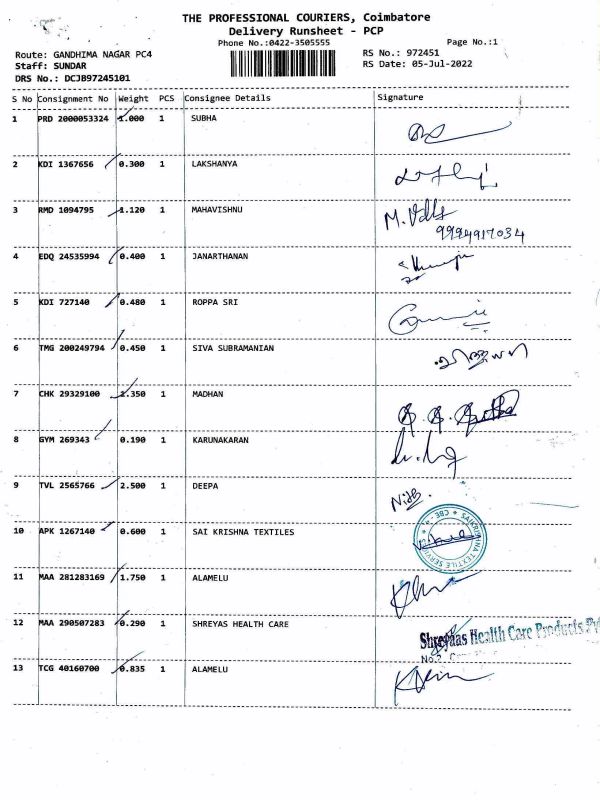 THE PROFESSIONAL COURIERS, Coimbatore
Delivery Runsheet - PCP
Phone No.:0422-3505555 Page No.:1
Route: GANDHIMA NAGAR PC4 RS No.: 972451
Staff: SUNDAR RS Date: 05-Jul-2022
DRS No.: DCJB97245101
S No Consignment No Weight PCS Consignee Details Signature
1 PRD 2000053324 1.000 1 SUBHA
2 KDI 1367656 0.300 1 LAKSHANYA
3 RMD 1094795 1.120 1 MAHAVISHNU
9994917034
4 EDQ 24535994 0.400 1 JANARTHANAN
5 KDI 727140 0.480 1 ROPPA SRI
6 TMG 200249794 0.450 1 SIVA SUBRAMANIAN
7 CHK 29329100 1.350 1 MADHAN
8 GYM 269343 0.190 1 KARUNAKARAN
9 TVL 2565766 2.500 1 DEEPA
10 APK 1267140 0.600 1 SAI KRISHNA TEXTILES
11 MAA 281283169 1.750 1 ALAMELU
12 MAA 290507283 0.290 1 SHREYAS HEALTH CARE
Shreyaas Health Care Products
No.2
13 TCG 40160700 0.835 1 ALAMELU